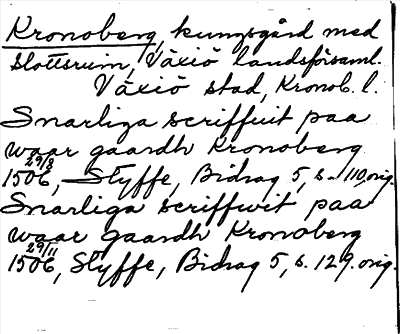 Kronoberg, kungsgård med
slottsruin, Växiö landsförsaml.
Växiö stad, Kronob. l.
Snarliga scriffuit paa
waar gaardh Kronoberg
29/8
1506, Styffe, Bidrag 5, s. 110, orig.
Snarliga scriffwit paa
waar gaardh Kronoberg
29/11
1506, Styffe, Bidrag 5, s. 129. orig.